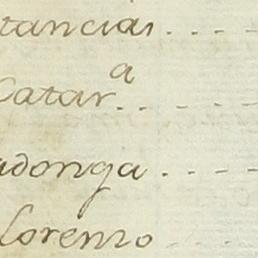 tancias . . . - -
Catarª. . - - - -
adonga . - - - -
Lorenzo - - - -